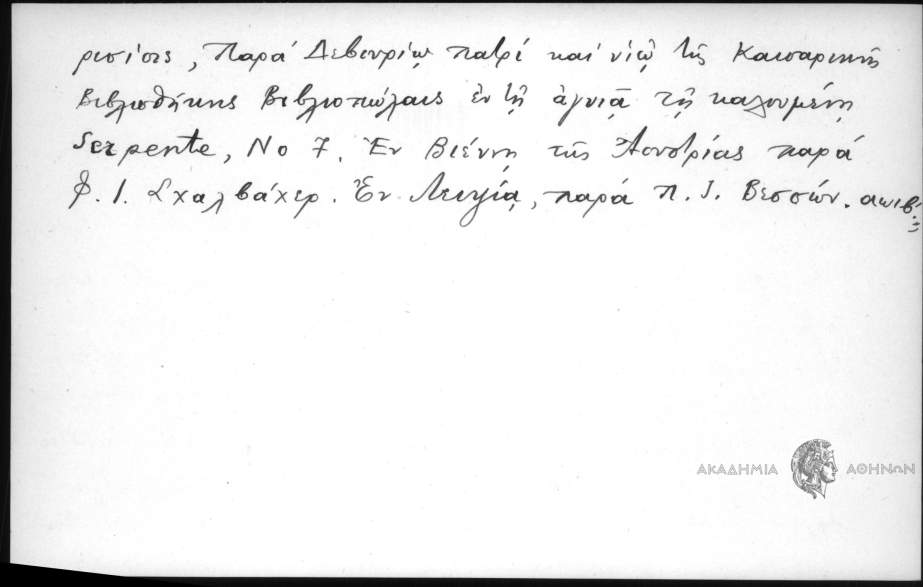 ρισίοις, Παρά Δεβυρίῳ πατρί καί υἱῷ τῆς Καισαρικῆς
Βιβλιοθήκης Βιβλιοπώλαις ἐν τῇ ἀγυιᾷ τῇ καλουμένῃ
Serpente, No 7. Ἐν Βιέννῃ τῆς Ἀουστρίας παρά
Φ. Ι. Σχαλβάχερ. Ἐν Λειψίᾳ, παρά Π. Ι. Βεσσών. αωιβ'.
ΑΚΑΔΗΜΙΑ ΑΘΗΝΩΝ